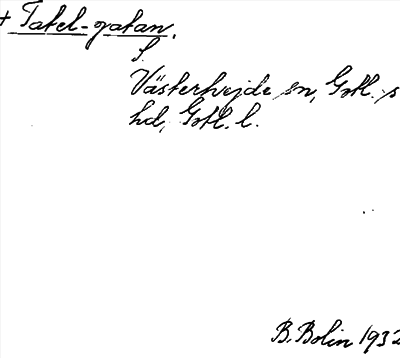 + Tafel-gatan.
S.
Västerhejde sn, Gotl. s
hd, Gotl. l.
B. Bolin 1932